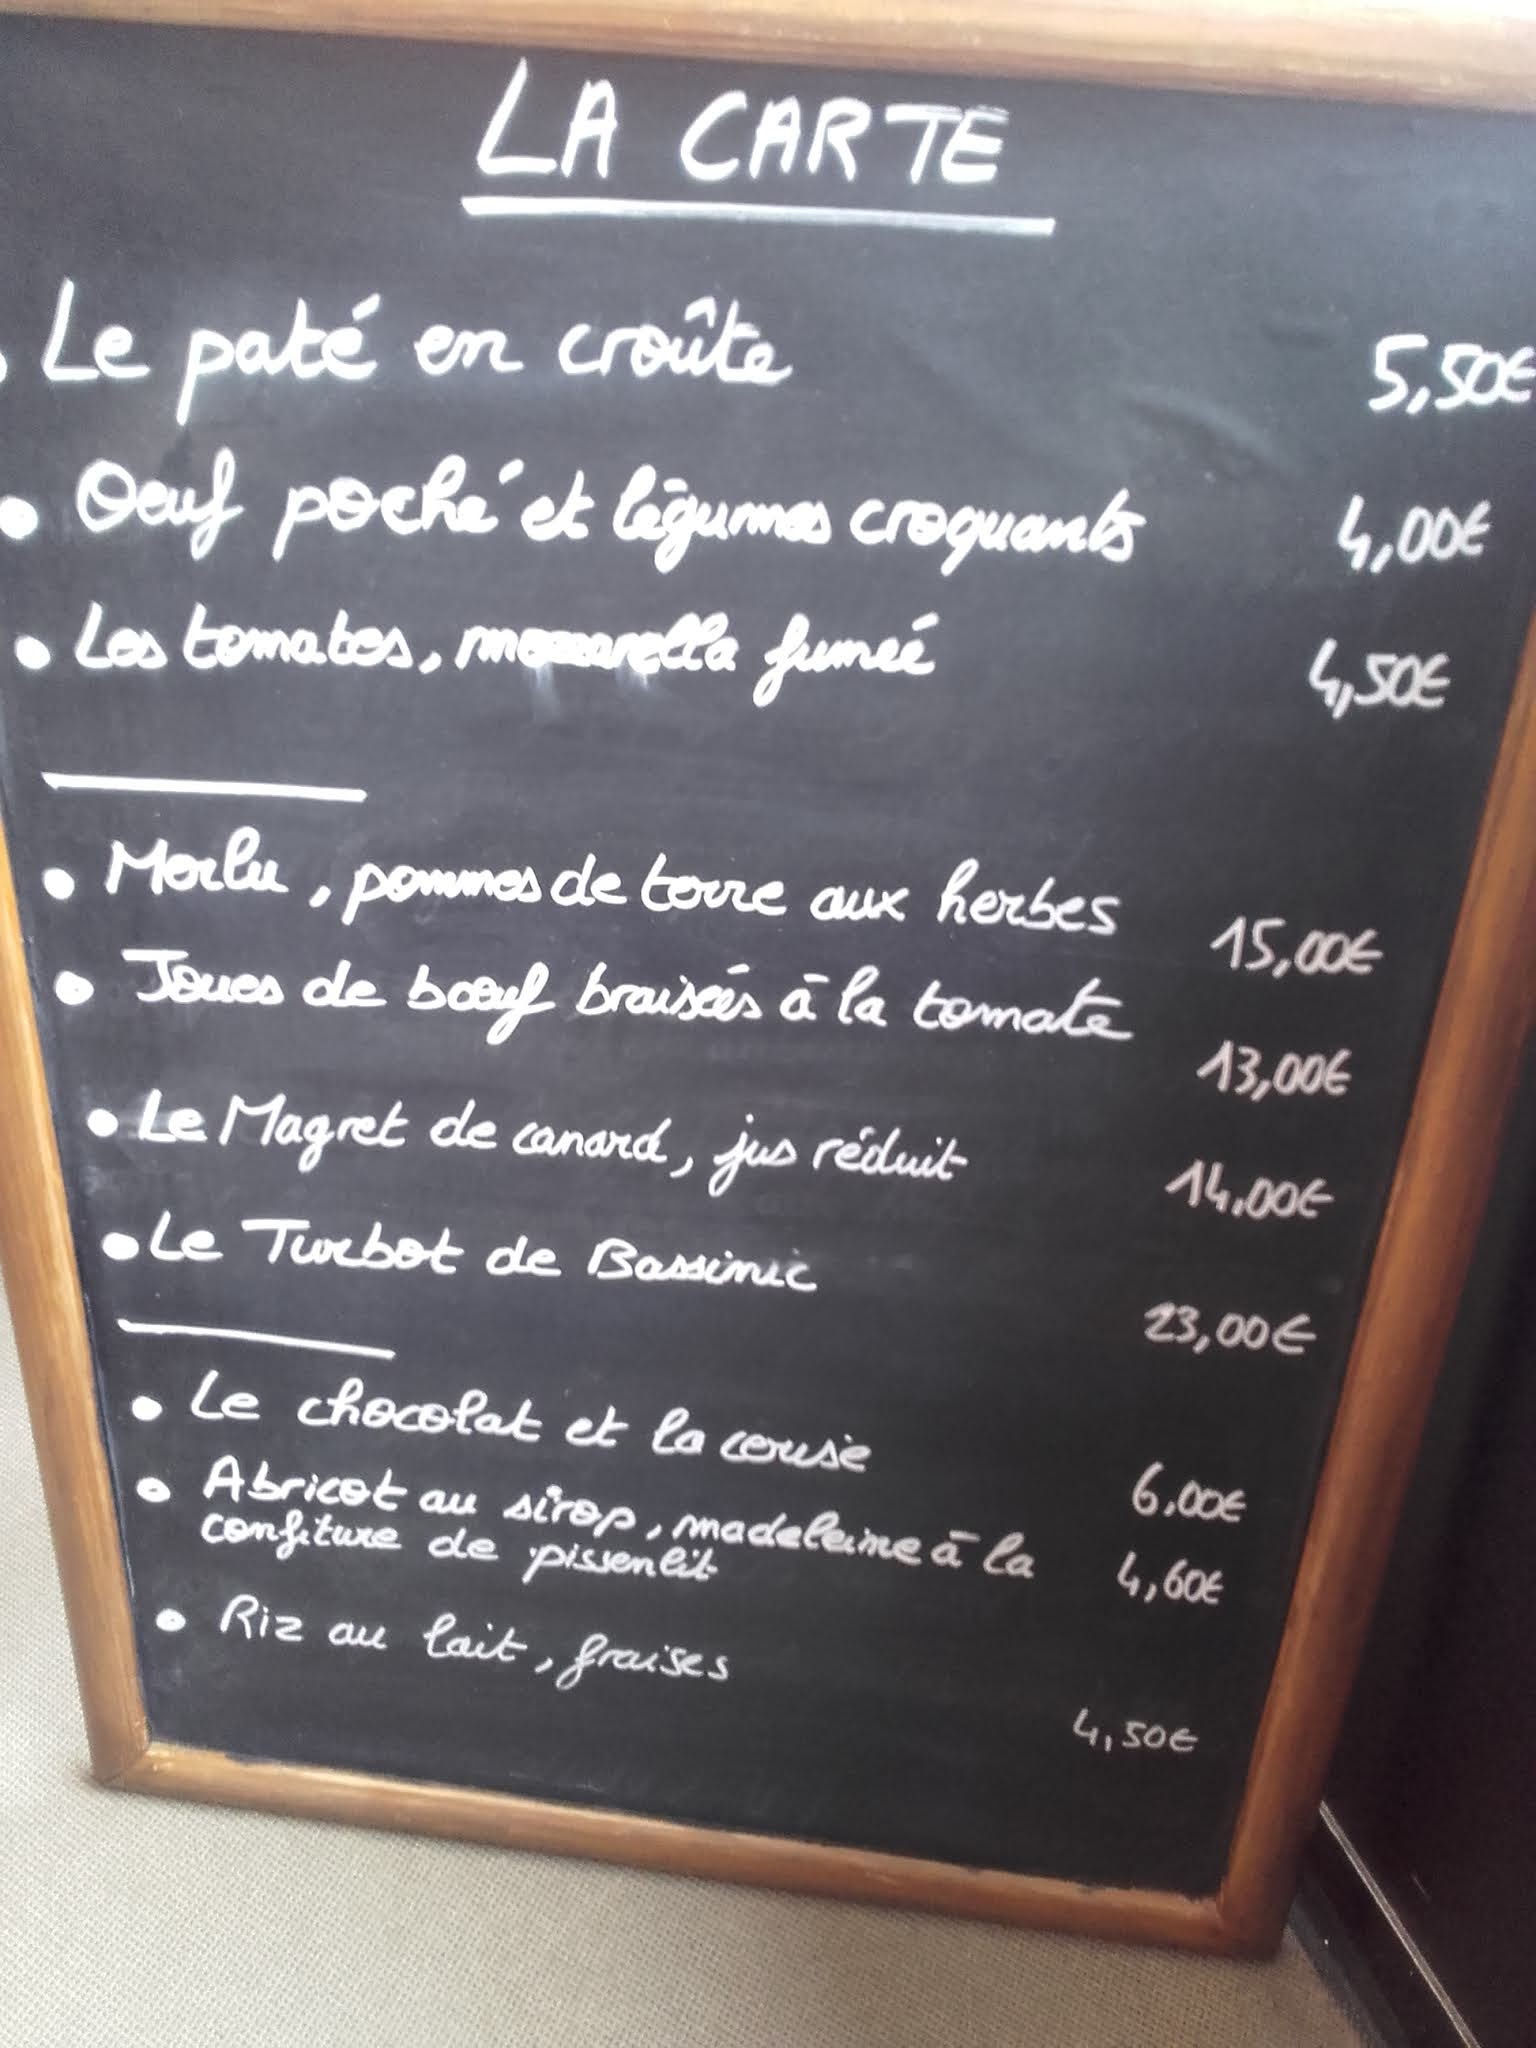 LA CARTE
• Le paté en croûte 5,50€
• Oeuf poché et légumes croquants 4,00€
• Les tomates, mozzarella fumeé 4,50€
• Merlu, pommes de terre aux herbes 15,00€
• Joues de bœuf braisées à la tomate 13,00€
• Le Magret de canard, jus réduit 14.00€
• Le Turbot de Bassinic 23,00€
• Le chocolat et la cerise 6.00€
• Abricot au sirop, madeleine à la 4,60€
confiture de pissenlit
• Riz au lait, fraises 4,50€